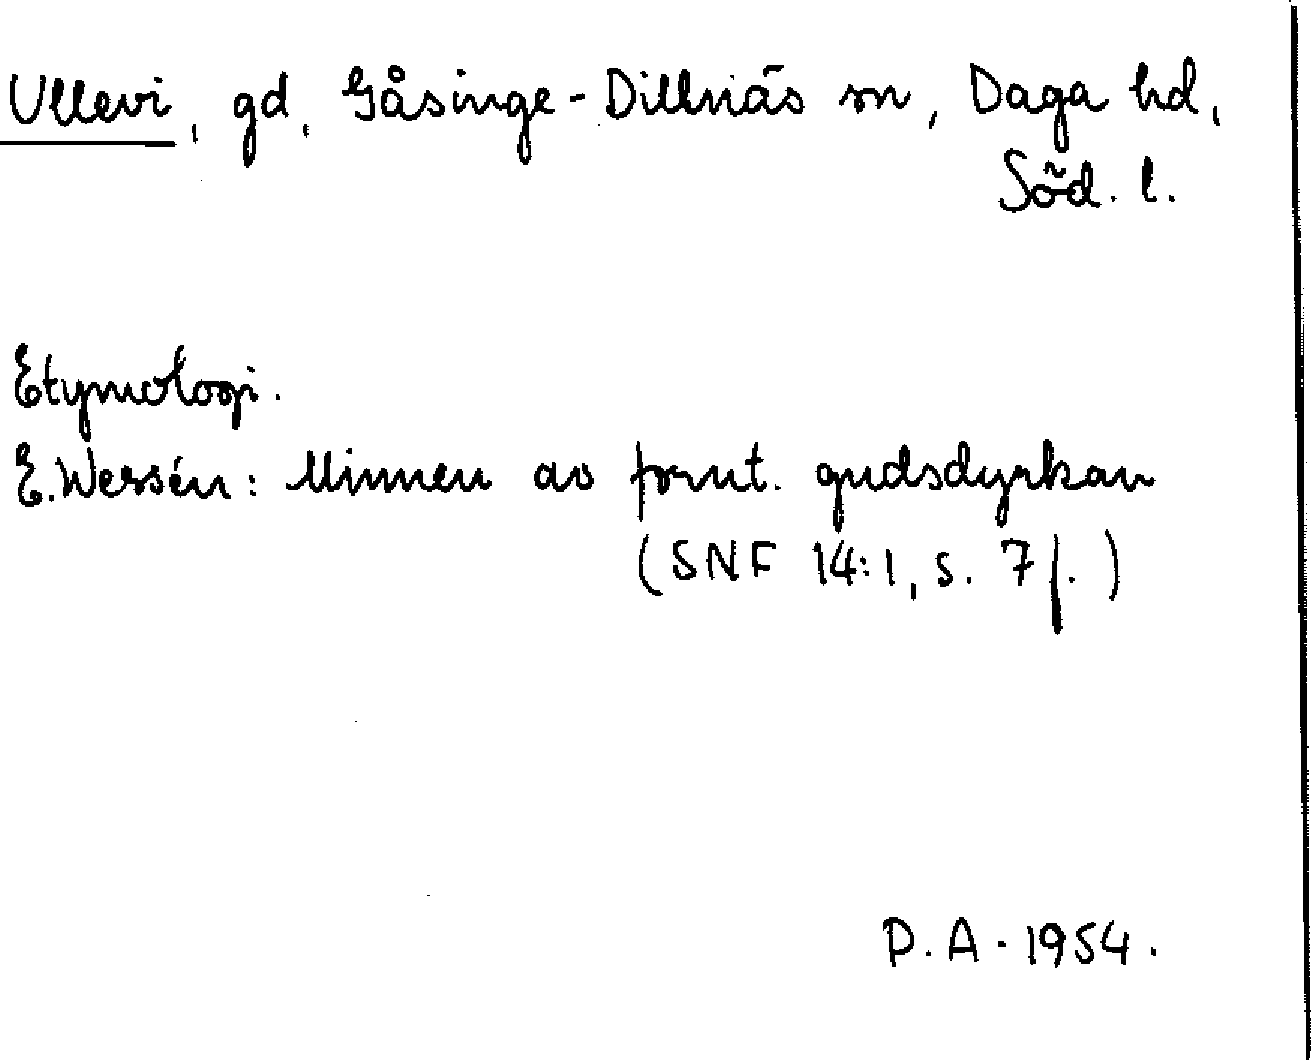 Ullevi, gd, Gåsinge-Dillnäs sn, Daga hd,
Söd. l.
Etymologi.
E. Wessén: Minnen av fornt. gudsdyrkan
(SNF 14:1, s. 7 f.)
P.A. 1954.